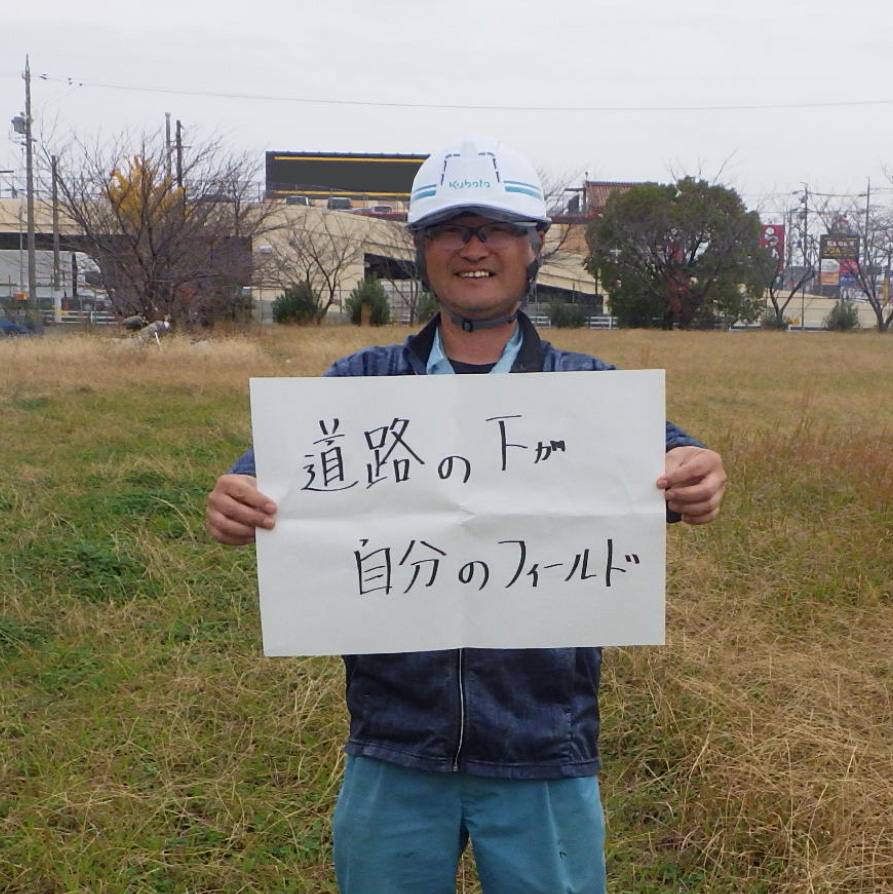 Kubota
道路の下が
自分のフィールド